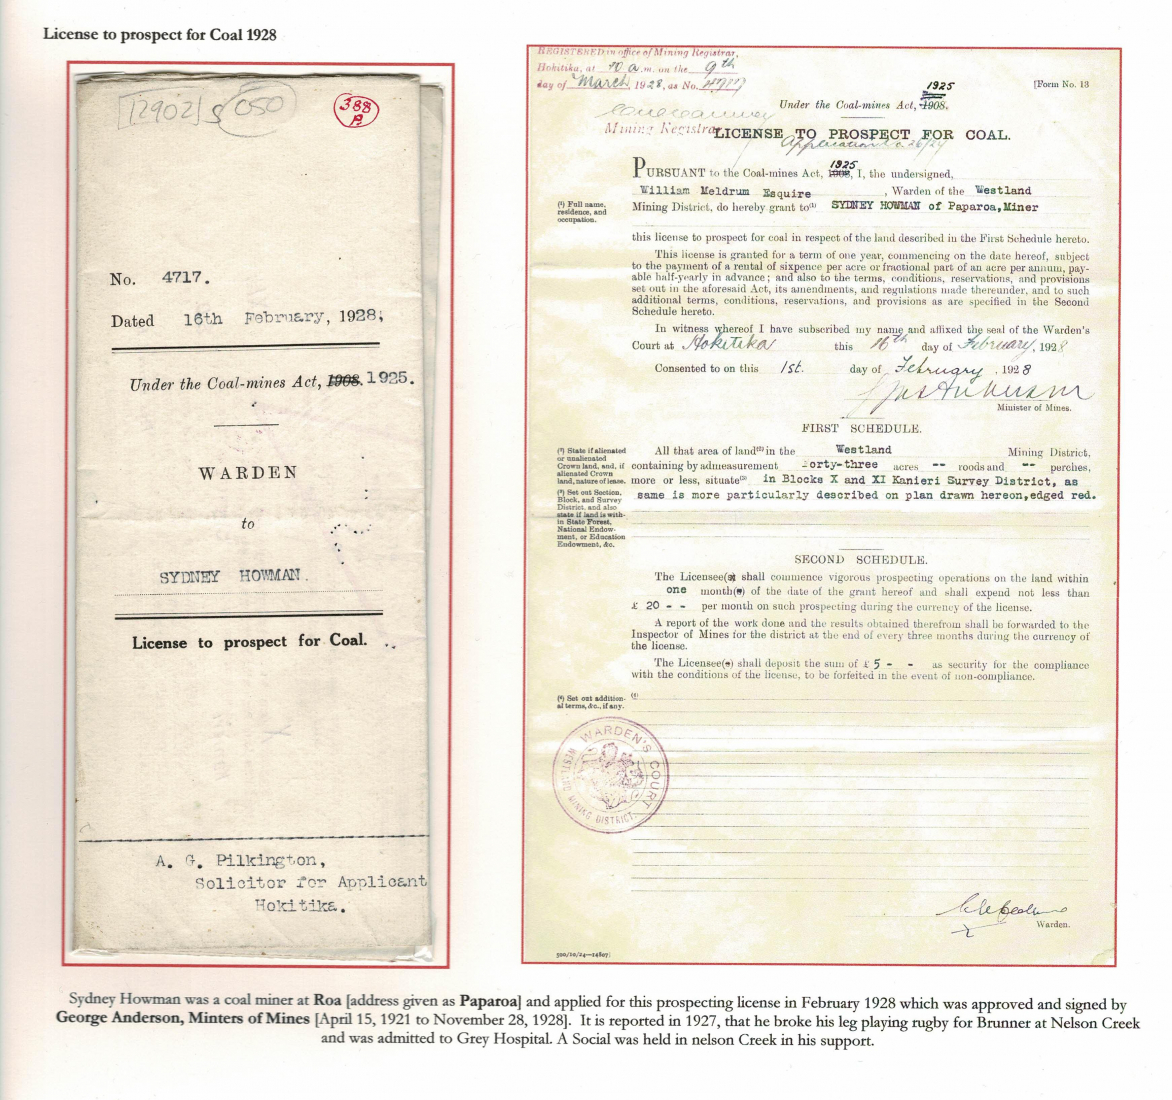 License to prospect for Coal 1928
12902
050
388
No. 4717.
Dated 16th February, 1928,
Under the Coal-mines Act, 1908. 1925.
WARDEN
to
SYDNEY HOWMAN.
License to prospect for Coal.
A. G. Pilkington,
Solicitor for Applicant
Hokitika.
REGISTERED in office of Mining Registrar,
Hokitika, at 10 a.m. on the 9th
day of March, 1928, as No.
Mining Registrar
[Form No. 13
1925
Under the Coal-mines Act, 1908.
LICENSE TO PROSPECT FOR COAL.
Application
1925
PURSUANT to the Coal-mines Act, 1908, I, the undersigned,
William Meldrum Esquire , Warden of the Westland
Mining District, do hereby grant to(¹) SYDNEY HOWMAN of Paparoa,Miner
(¹) Full name,
residence, and
occupation.
this license to prospect for coal in respect of the land described in the First Schedule hereto.
This license is granted for a term of one year, commencing on the date hereof, subject
to the payment of a rental of sixpence per acre or fractional part of an acre per annum, pay-
able half-yearly in advance; and also to the terms, conditions, reservations, and provisions
set out in the aforesaid Act, its amendments, and regulations made thereunder, and to such
additional terms, conditions, reservations, and provisions as are specified in the Second
Schedule hereto.
In witness whereof I have subscribed my name and affixed the seal of the Warden's
Court at Hokitika this 16th day of February, 1928
Consented to on this 1st. day of February , 1928
Minister of Mines.
FIRST SCHEDULE.
(²) State if alienated
or unalienated
Crown land, and, if
alienated Crown
land, nature of lease.
(³) Set out Section,
Block, and Survey
District, and also
state if land is with-
in State Forest,
National Endow-
ment, or Education
Endowment, &c.
All that area of land(²) in the Westland Mining District,
containing by admeasurement forty-three acres -- roods and -- perches,
more or less, situate(³) in Blocks X and XI Kanieri Survey District, as
same is more particularly described on plan drawn hereon,edged red.
SECOND SCHEDULE.
The Licensee(s) shall commence vigorous prospecting operations on the land within
one month(s) of the date of the grant hereof and shall expend not less than
£ 20 - - per month on such prospecting during the currency of the license.
A report of the work done and the results obtained therefrom shall be forwarded to the
Inspector of Mines for the district at the end of every three months during the currency of
the license.
The Licensee(s) shall deposit the sum of £ 5 - - as security for the compliance
with the conditions of the license, to be forfeited in the event of non-compliance.
(⁴) Set out addition-
al terms, &c., if any.
(⁴)
WARDEN'S COURT
WESTLAND MINING DISTRICT.
Warden.
500/10/24—14807]
Sydney Howman was a coal miner at Roa [address given as Paparoa] and applied for this prospecting license in February 1928 which was approved and signed by
George Anderson, Minters of Mines [April 15, 1921 to November 28, 1928]. It is reported in 1927, that he broke his leg playing rugby for Brunner at Nelson Creek
and was admitted to Grey Hospital. A Social was held in nelson Creek in his support.